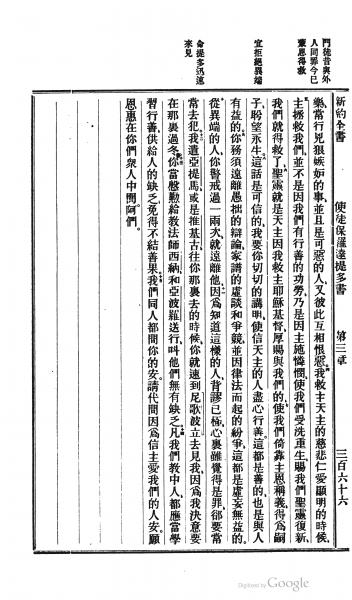 新約全書 使徒保羅達提多書 第三章 三百六十六
門徒昔與外
人同罪今已
蒙恩得救
宜拒絕異端
命提多迅速
來見
樂常行兇狠嫉妒的事、並且是可惡的人、又彼此互相恨惡我救主天主的慈悲仁愛顯明的時候、
主拯救我們、並不是因我們有行善的功勞、乃是因主施憐憫、使我們受洗重生、賜我們聖靈復新、
我們就得救了、聖靈就是天主因我救主耶穌基督厚賜與我們的、使我們倚靠主恩稱義、得爲嗣
子、盼望永生、這話是可信的、我要你切切的講明、使信天主的人盡心行善、這都是善的、也是與人
有益的、你務須遠離愚拙的辯論、家譜的虛談、和爭競、並因律法而起的紛爭、這都是虛妄無益的、
從異端的人、你警戒過一兩次、就遠離他、因爲知道這樣的人、背謬已極、心裏雖覺得是罪、卻要常
常去犯、我遣亞提馬或是推基古、往你那裏去的時候、你就速到尼歌波立去見我、因爲我決意要
在那裏過冬、你當慇懃給教法師西納、和亞波羅送行、叫他們無有缺乏、凡我們教中人、都應當學
習行善、供給人的缺乏、免得不結善果、我們同人都問你的安、請代問因爲信主愛我們的人安、願
恩惠在你們衆人中間、阿們、
Digitized by Google